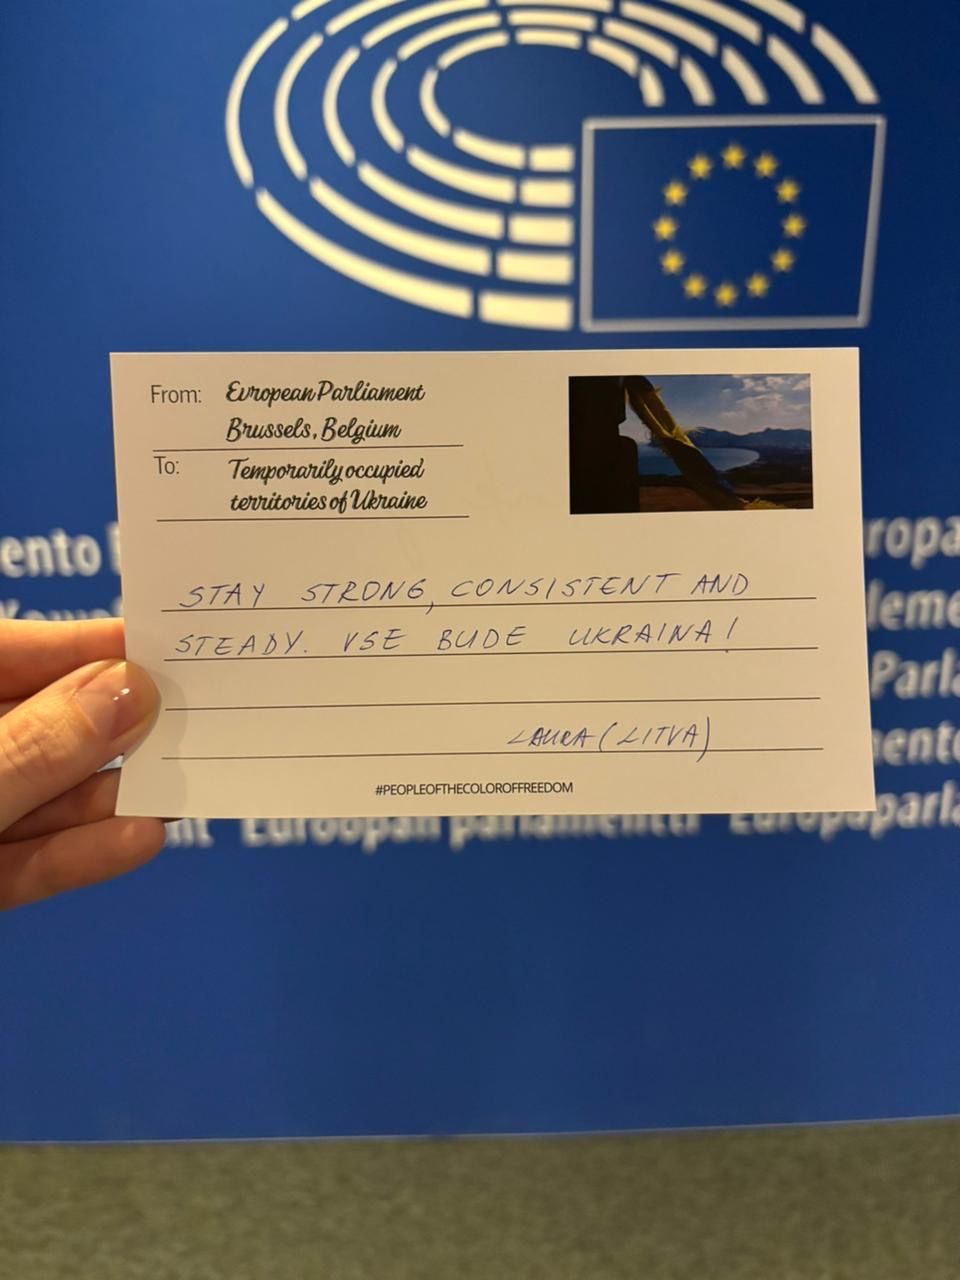 From: European Parliament
Brussels, Belgium
To: Temporarily occupied
territories of Ukraine
STAY STRONG, CONSISTENT AND
STEADY. VSE BUDE UKRAINA!
LAURA (LITVA)
#PEOPLEOFTHECOLOROFFREEDOM
ento
ropa
leme
Parla
ento
nt Euroopan parlamentti Europaparla